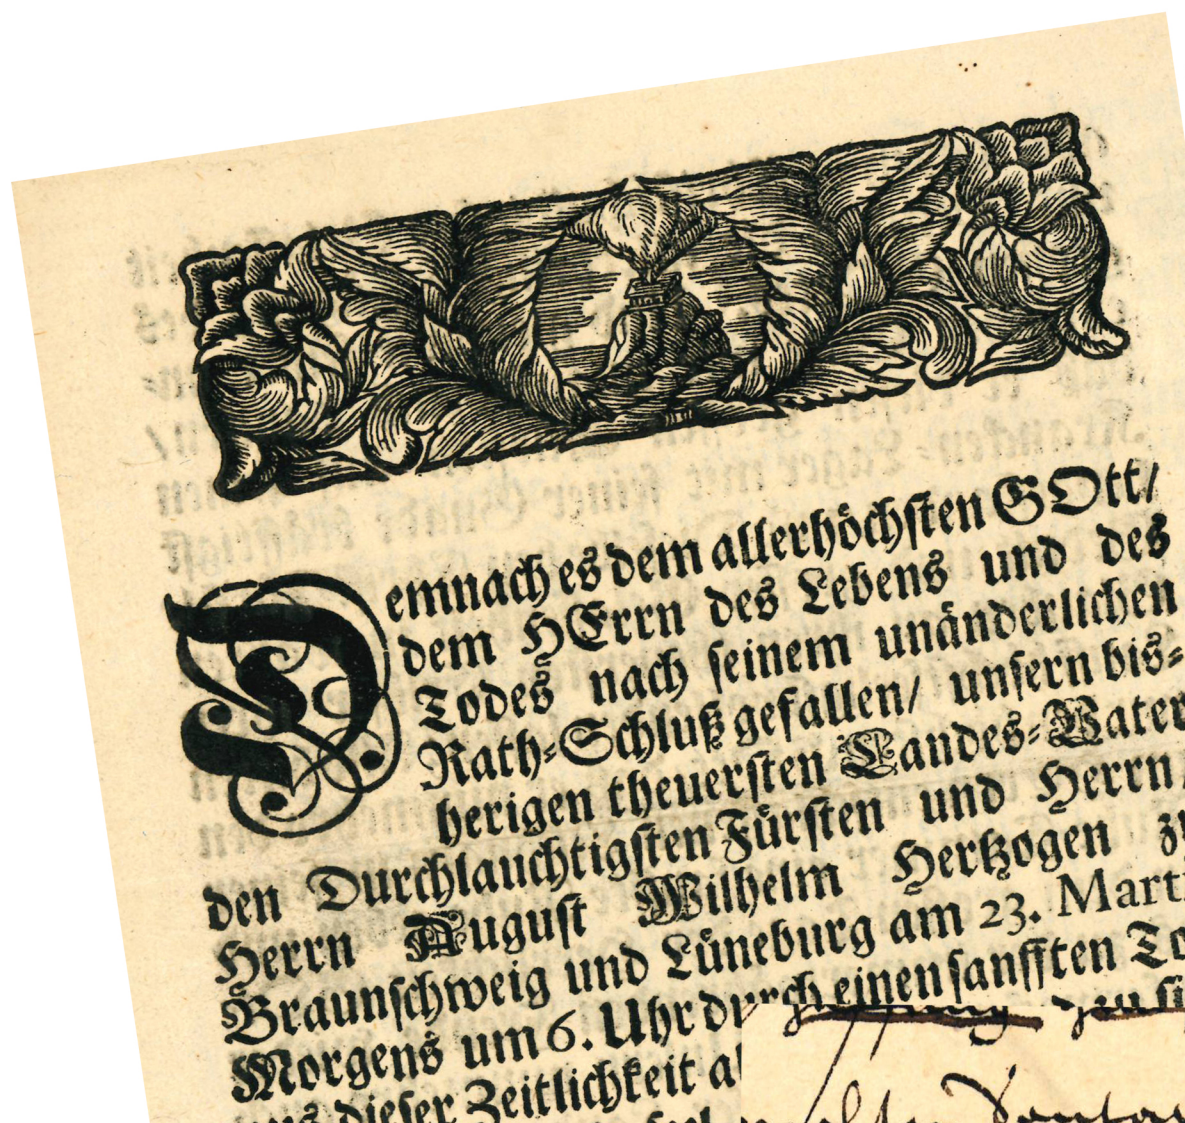 Demnach es dem allerhöchsten GOtt/
dem HErrn des Lebens und des
Todes nach seinem unänderlichen
Rath-Schluß gefallen/ unsern bis-
herigen theuersten Landes-Vater
den Durchlauchtigsten Fürsten und Herrn/
Herrn August Wilhelm Hertzogen
Braunschweig und Lüneburg am 23. Marti
Morgens um 6. Uhr durch einen sanfften
dieser Zeitlichkeit